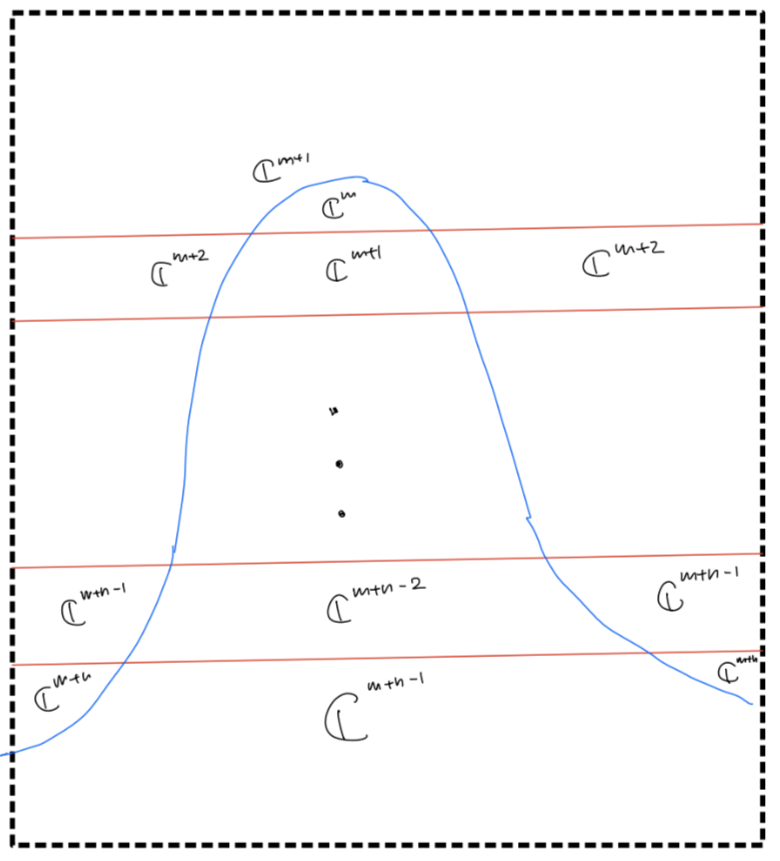 ℂ^{m+1}
ℂ^{m}
ℂ^{m+2} ℂ^{m+1} ℂ^{m+2}
ℂ^{m+n-1} ℂ^{m+n-2} ℂ^{m+n-1}
ℂ^{m+n} ℂ^{m+n-1} ℂ^{m+n}